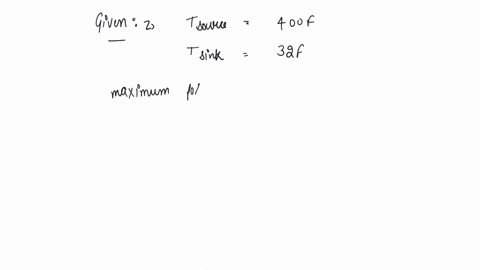 Given: T source = 400F
T sink = 32F
maximum